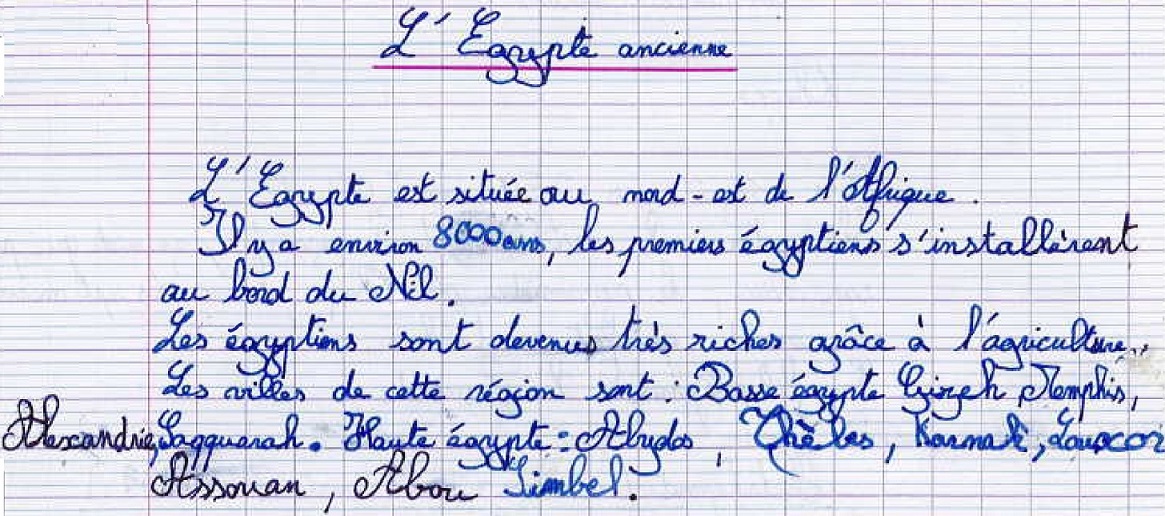 L'Egypte ancienne
L'Egypte est située au nord-est de l'Afrique.
Il y a environ 8000 ans, les premiers égyptiens s'installèrent
au bord du Nil.
Les égyptiens sont devenus très riches grâce à l'agriculture.
Les villes de cette région sont : Basse égypte Gizeh Memphis,
Alexandrie, Sagquarah. Haute égypte : Abydos, Thèbes, Karnak, Louxor
Assouan, Abou Simbel.